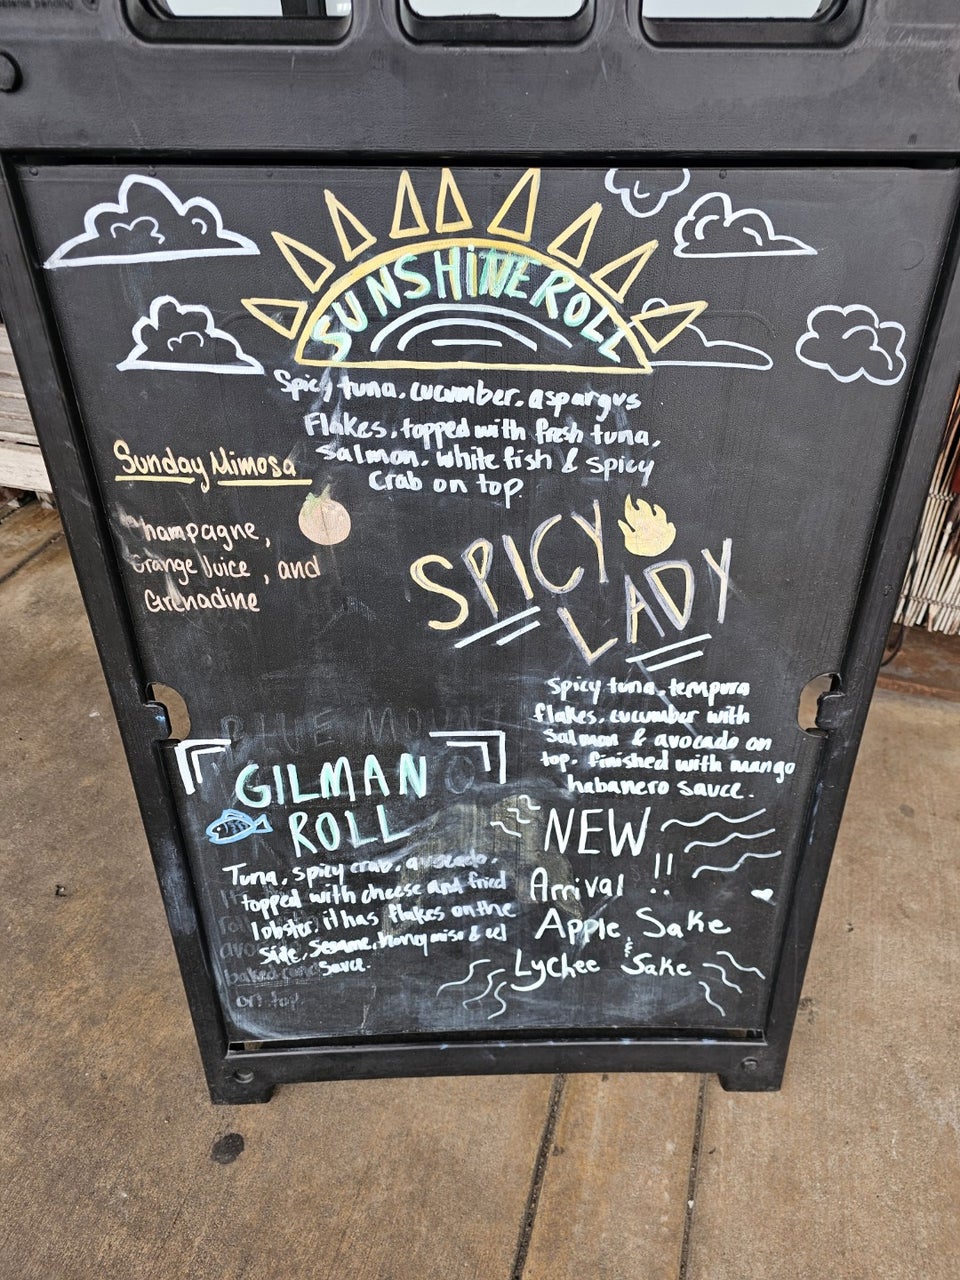 SUNSHINE ROLL
Spicy tuna, cucumber, aspargus
Flakes, topped with fresh tuna,
Salmon, white fish & spicy
Crab on top.
Sunday Mimosa
Champagne,
Orange Juice, and
Grenadine
SPICY
LADY
Spicy tuna, tempura
flakes, cucumber with
Salmon & avocado on
top, finished with mango
habanero sauce.
BLUE MOUNT
GILMAN
ROLL
Tuna, spicy crab, avocado,
topped with cheese and fried
lobster, it has flakes on the
side, Sesame, Honey miso & eel
sauce.
baked
on top
NEW
Arrival !!
Apple Sake
&
Lychee Sake